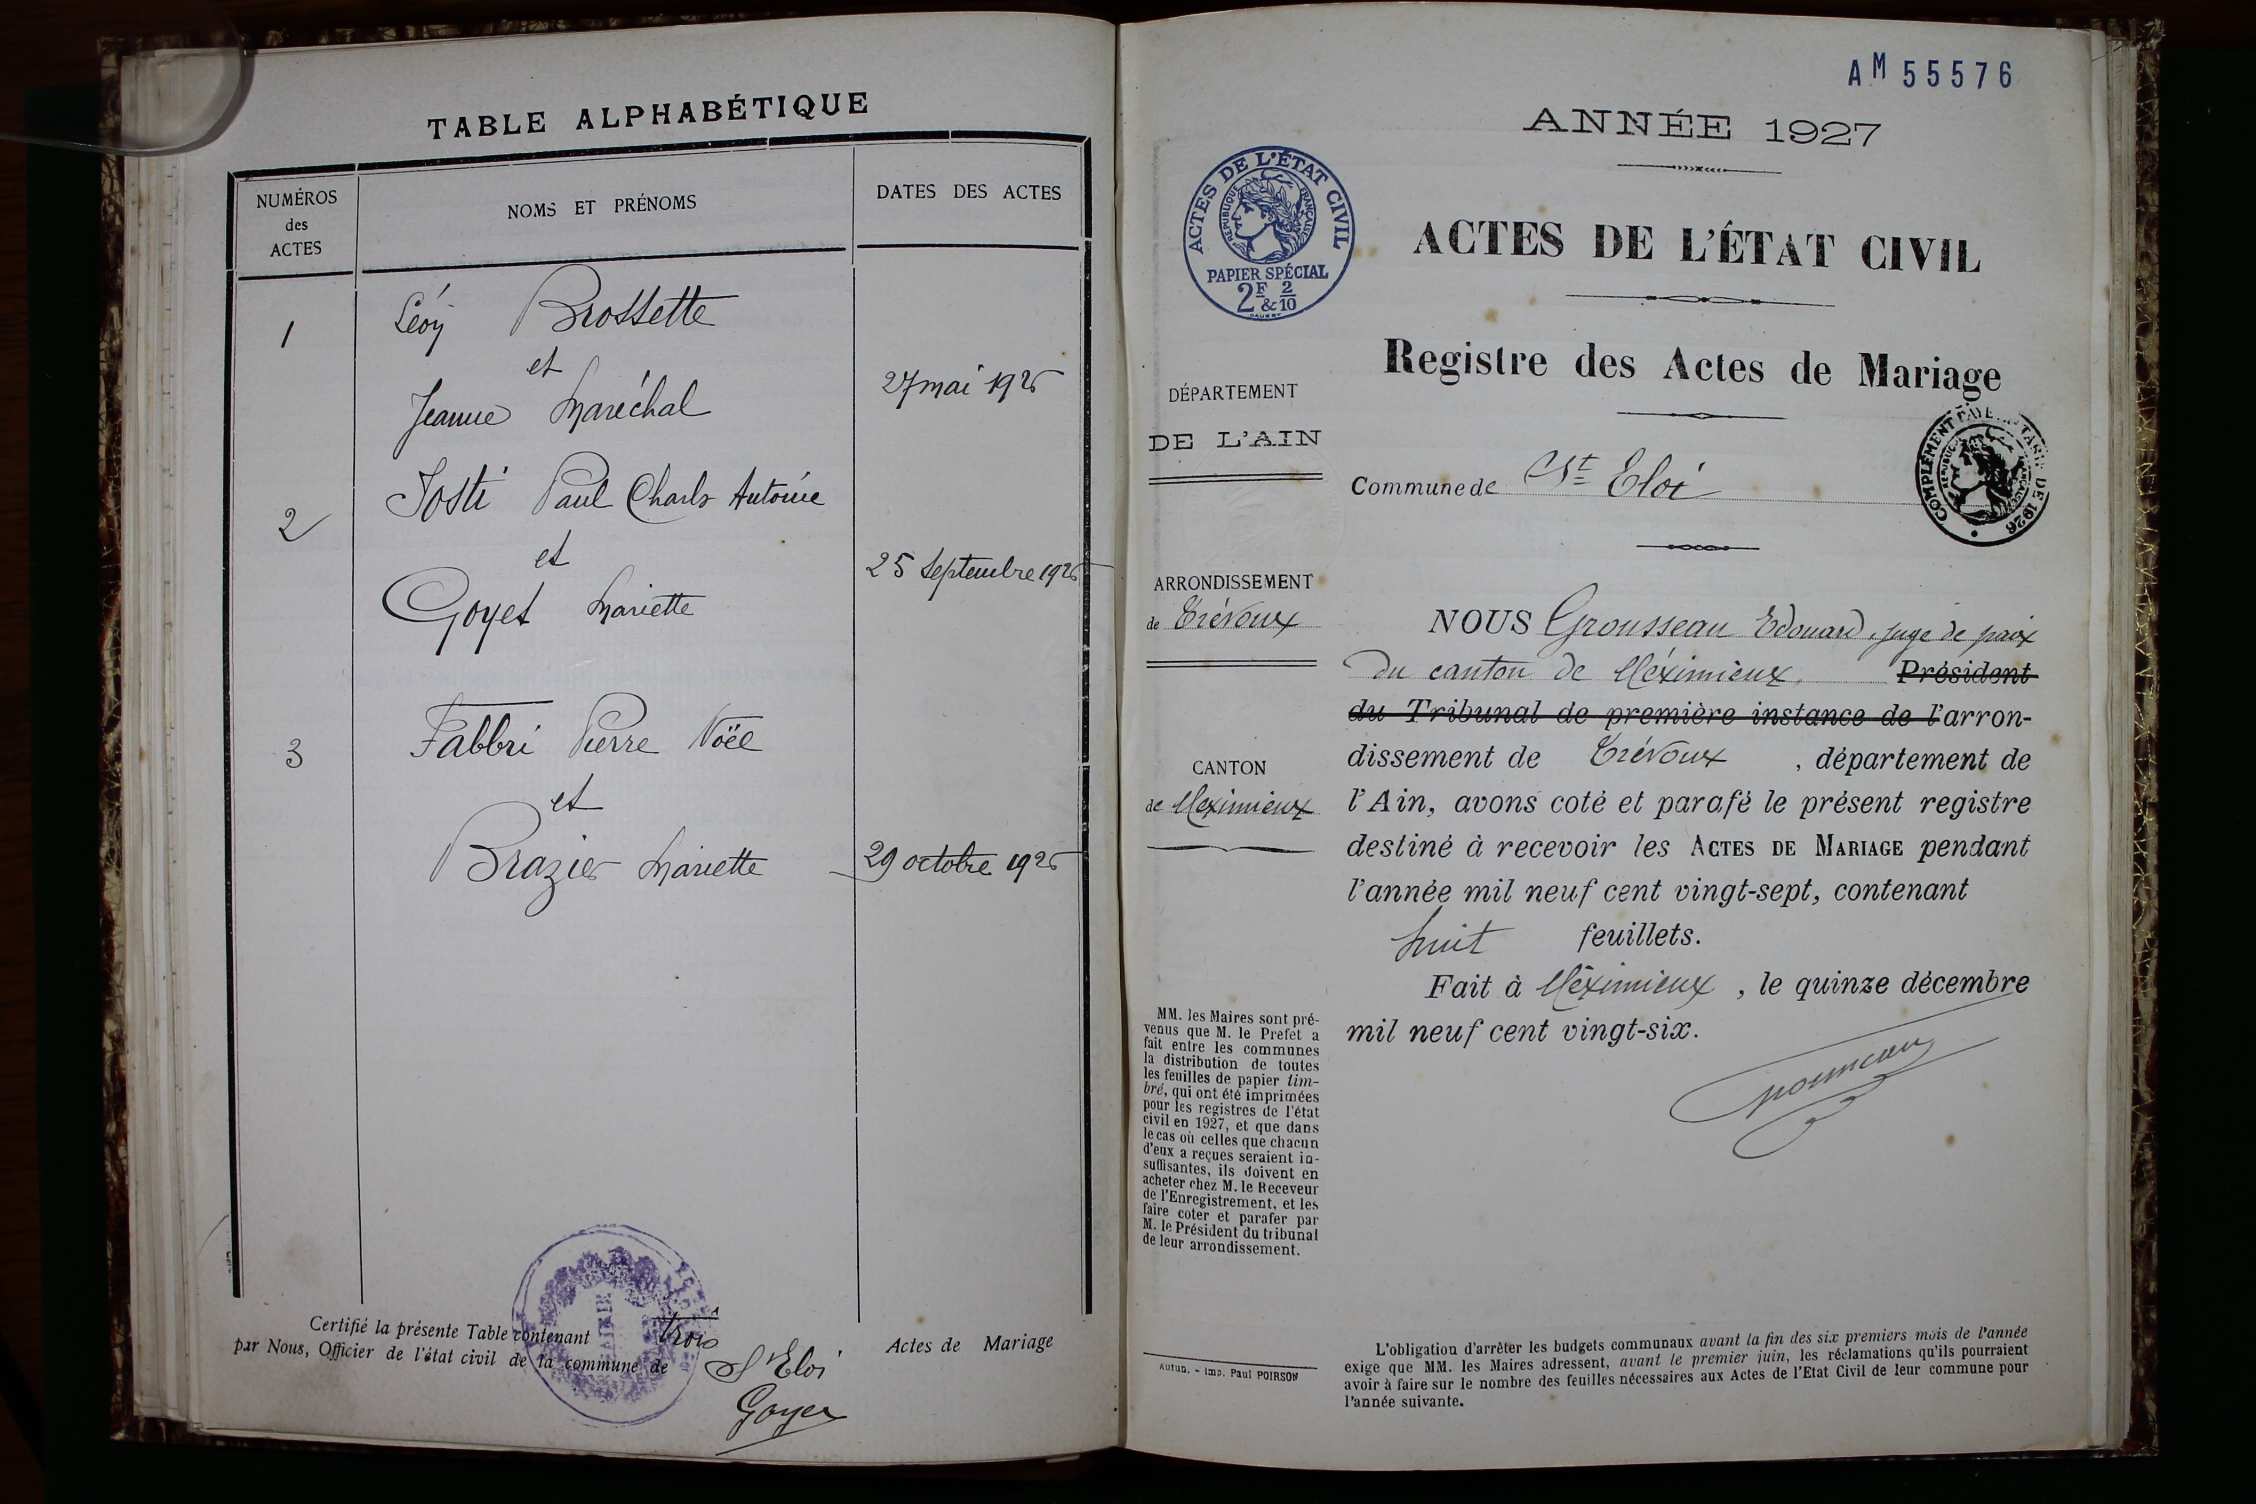 TABLE ALPHABÉTIQUE
NUMÉROS
des
ACTES
NOMS ET PRÉNOMS
DATES DES ACTES
1
Léon Brossette
et
Jeanne Maréchal
27 mai 1926
2
Josti Paul Charles Antoine
et
Goyet Mariette
25 Septembre 1926
3
Fabbri Pierre Noël
et
Brazier Mariette
29 octobre 1926
Certifié la présente Table contenant trois Actes de Mariage
par Nous, Officier de l'état civil de la commune de St Eloi
Goyet
AM 55576
ANNÉE 1927
ACTES DE L'ÉTAT CIVIL
RÉPUBLIQUE FRANÇAISE
PAPIER SPÉCIAL
2F & 2/10
ACTES DE L'ÉTAT CIVIL
Registre des Actes de Mariage
COMPLÉMENT PAYÉ TARIF DE 1926
DÉPARTEMENT
DE L'AIN
Commune de St Eloi
ARRONDISSEMENT
de Trévoux
CANTON
de Meximieux
NOUS Grousseau Edouard, juge de paix
du canton de Méximieux. Président
du Tribunal de première instance de l'arron-
dissement de Trévoux, département de
l'Ain, avons coté et parafé le présent registre
destiné à recevoir les ACTES DE MARIAGE pendant
l'année mil neuf cent vingt-sept, contenant
huit feuillets.
Fait à Méximieux, le quinze décembre
mil neuf cent vingt-six.
MM. les Maires sont pré-
venus que M. le Prefet a
fait entre les communes
la distribution de toutes
les feuilles de papier tim-
bré, qui ont été imprimées
pour les registres de l'état
civil en 1927, et que dans
le cas où celles que chacun
d'eux a reçues seraient in-
suffisantes, ils doivent en
acheter chez M. le Receveur
de l'Enregistrement, et les
faire coter et parafer par
M. le Président du tribunal
de leur arrondissement.
Autun. - Imp. Paul POIRSON
L'obligation d'arrêter les budgets communaux avant la fin des six premiers mois de l'année
exige que MM. les Maires adressent, avant le premier juin, les réclamations qu'ils pourraient
avoir à faire sur le nombre des feuilles nécessaires aux Actes de l'Etat Civil de leur commune pour
l'année suivante.